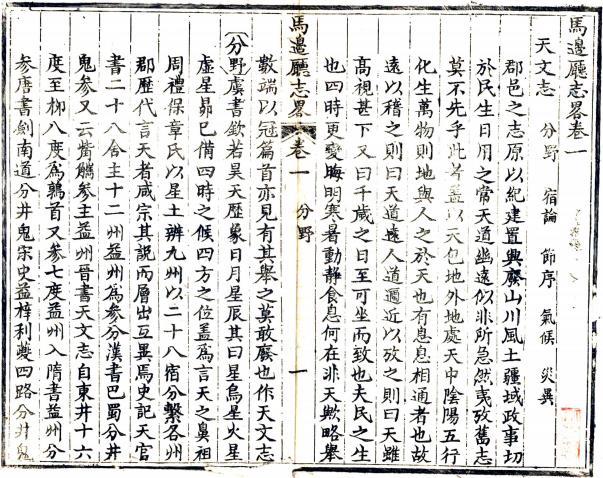 馬邊廳志畧卷一
天文志 分野 宿論 節序 氣候 災異
郡邑之志原以紀建置興廢山川風土疆域政事切
於民生日用之常天道幽遠似非所急然夷攷舊志
莫不先乎此者蓋以天包地外地處天中陰陽五行
化生萬物則地與人之於天也有息息相通者也故
遠以稽之則曰天道遠人道邇近以攷之則曰天雖
高視甚下又曰千歲之日至可坐而致也夫民之生
也四時更變晦明寒暑動靜食息何在非天歟略舉
馬邊廳志畧 卷一 分野 一
數端以冠篇首亦見有其舉之莫敢廢也作天文志
分野虞書欽若昊天歷象日月星辰其曰星鳥星火星
虛星昴已備四時之候四方之位蓋爲言天之鼻祖
周禮保章氏以星土辨九州以二十八宿分繫各州
郡歷代言天者咸宗其説而層出互異焉史記天官
書二十八舍主十二州益州爲參分漢書巴蜀分井
鬼參又云觜觿參主益州晉書天文志自東井十六
度至栁八度爲鶉首又參七度益州入隋書益州分
參唐書劍南道分井鬼宋史益梓利夔四路分井鬼